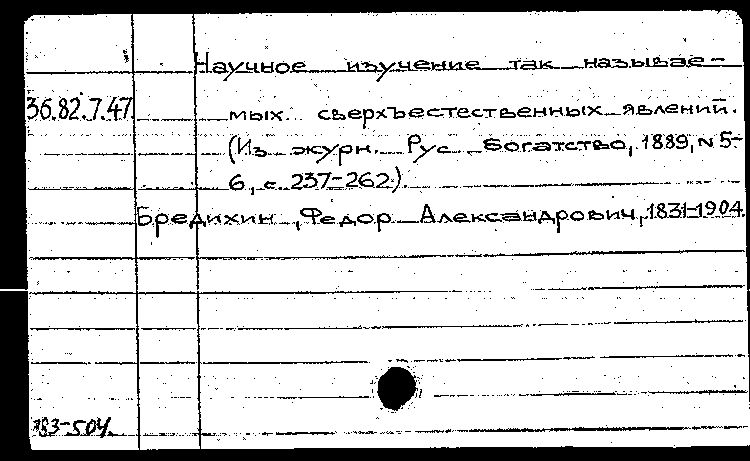 Научное изучение так называе-
36.82.7.47 мых сверхъестественных явлений.
(Из журн. Рус. Богатство, 1889, N 5-
6, с. 237-262).
Бредихин, Федор Александрович, 1831-1904.
383-504.